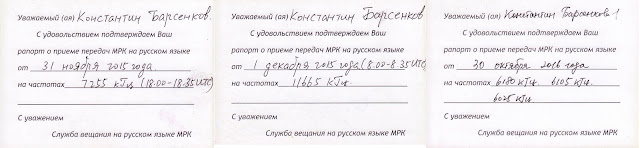 Уважаемый (ая) Константин Барсенков.
С удовольствием подтверждаем Ваш
рапорт о приеме передач МРК на русском языке
от 31 ноября 2015 года.
на частотах 7255 кГц (18:00-18:35 UTC)
С уважением
Служба вещания на русском языке МРК
Уважаемый (ая) Константин Барсенков.
С удовольствием подтверждаем Ваш
рапорт о приеме передач МРК на русском языке
от 1 декабря 2015 года (8:00-8:35 UTC)
на частотах 11665 кГц.
С уважением
Служба вещания на русском языке МРК
Уважаемый (ая) Константин Барсенков!
С удовольствием подтверждаем Ваш
рапорт о приеме передач МРК на русском языке
от 30 октября 2016 года
на частотах 6180 кГц. 6105 кГц.
6025 кГц.
С уважением
Служба вещания на русском языке МРК